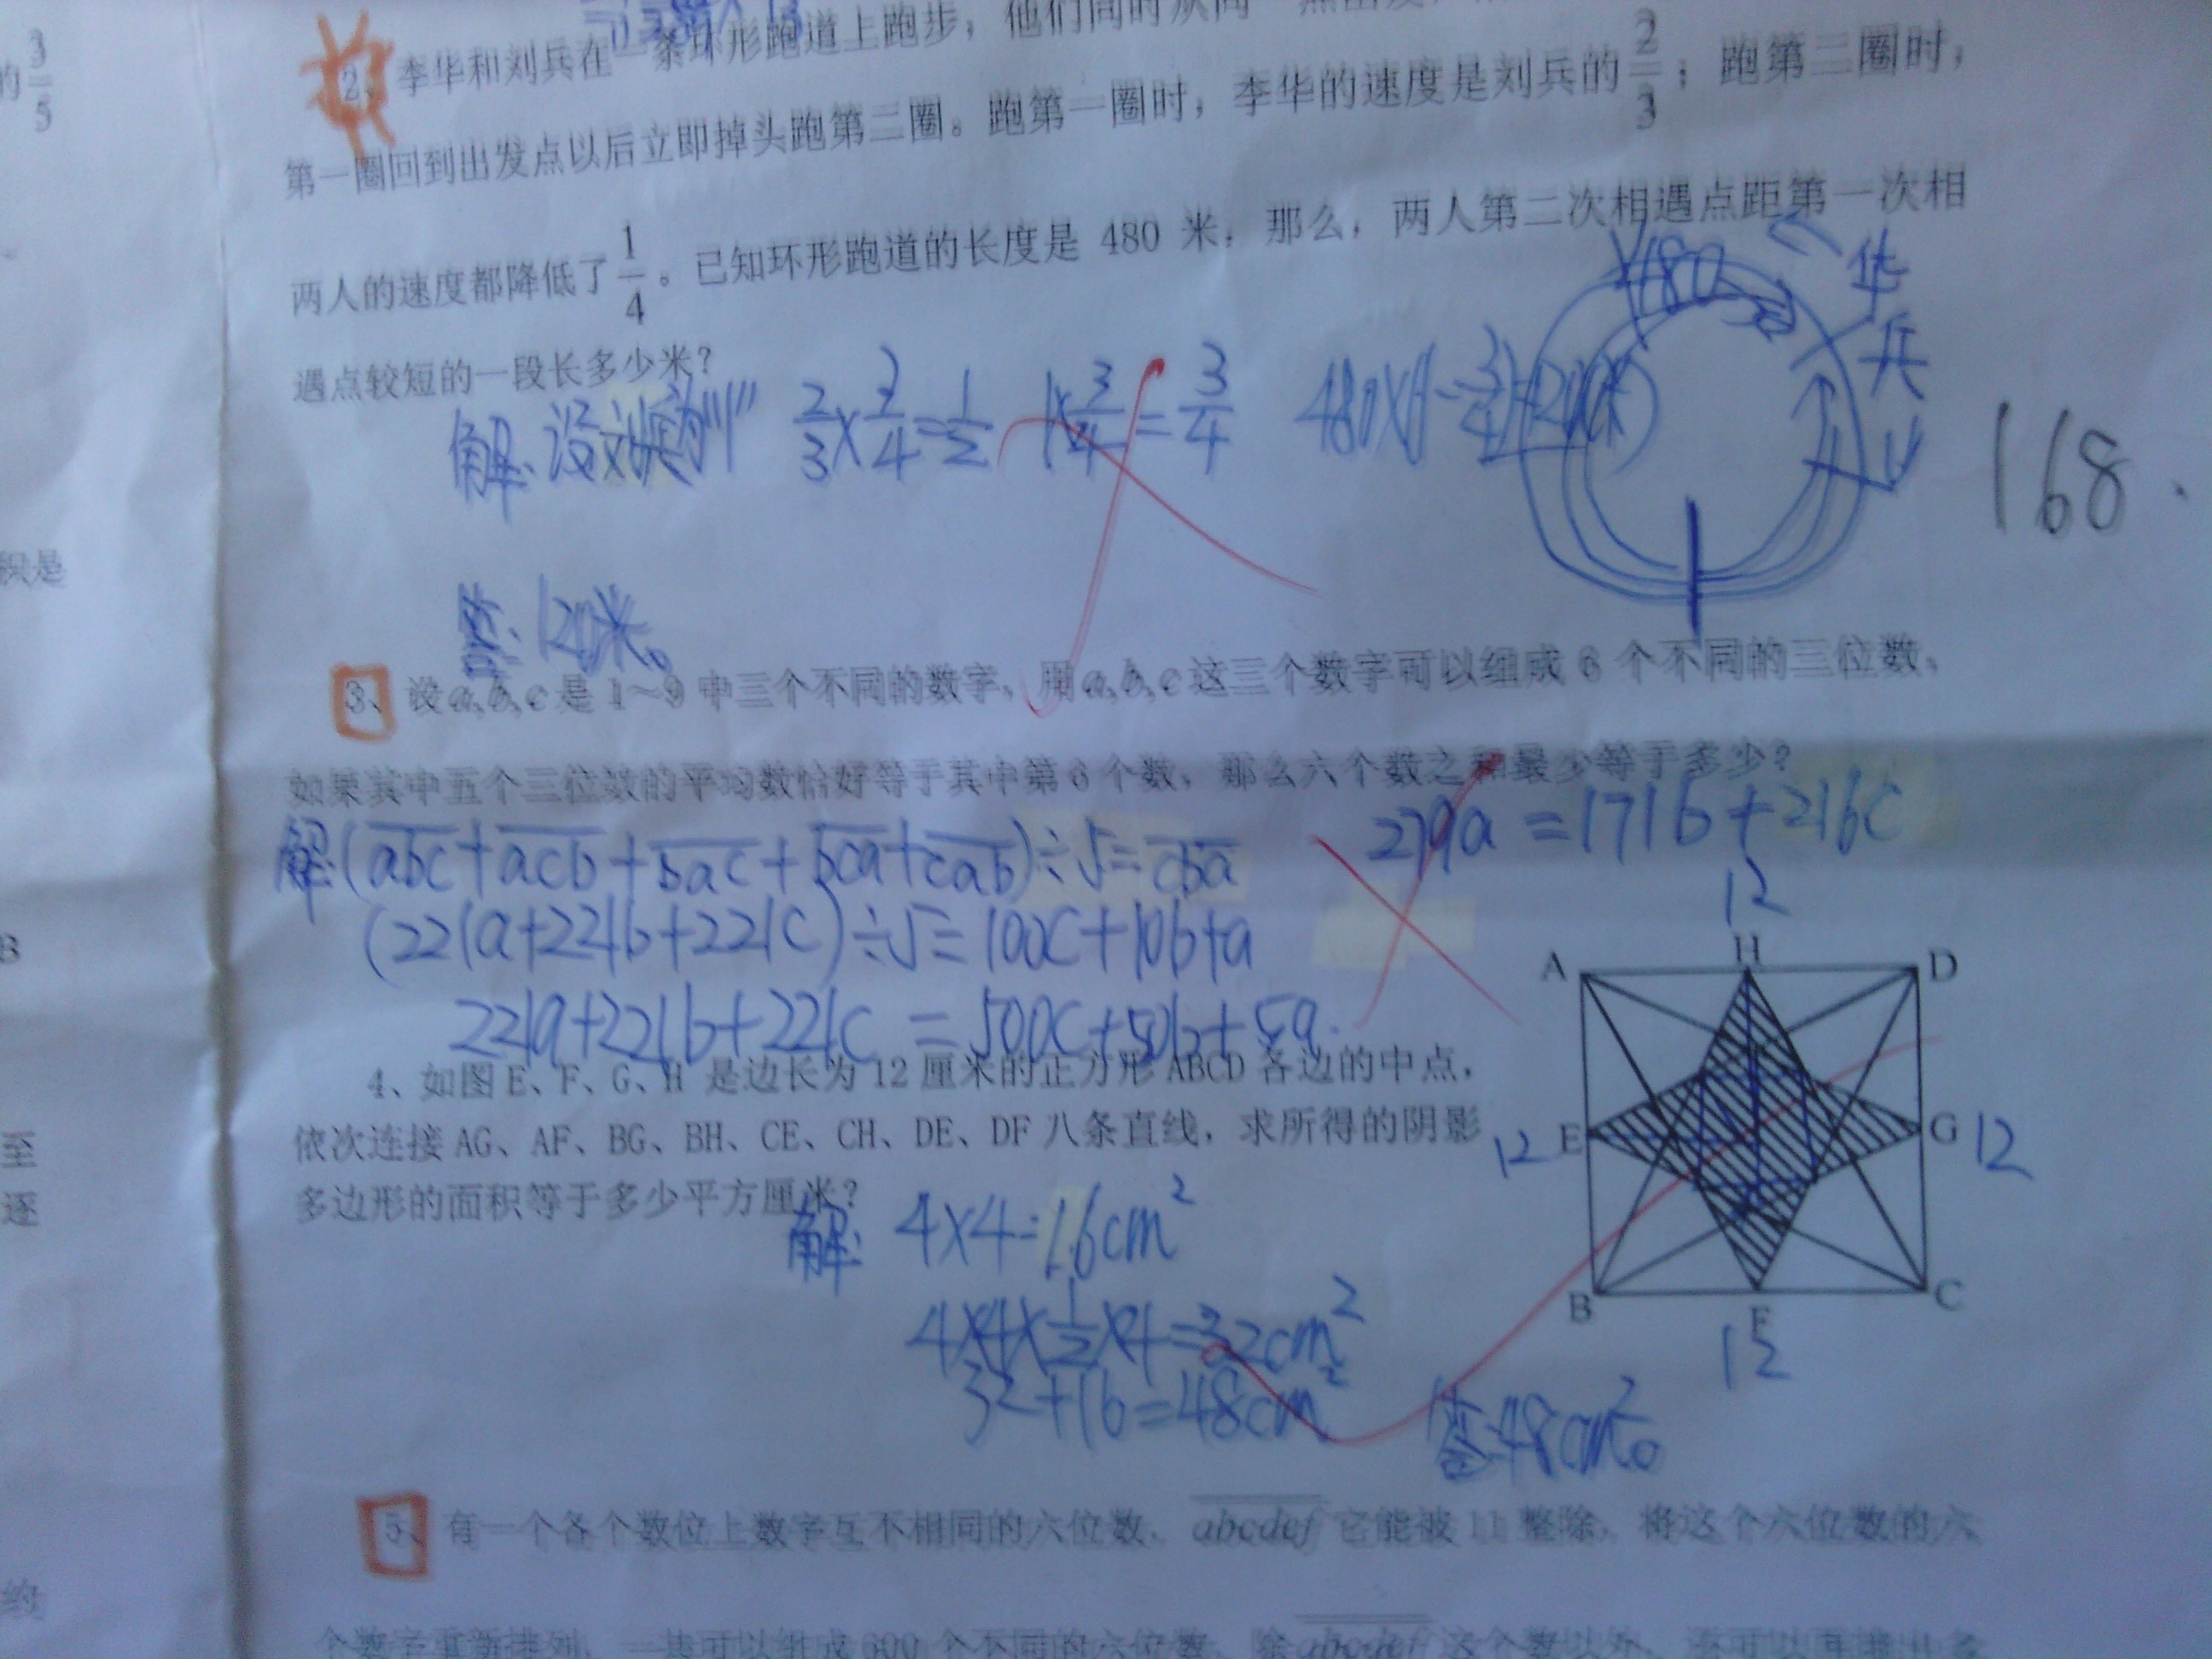 的3/5
2、李华和刘兵在一条环形跑道上跑步，他们同时从同一点出发，
第一圈回到出发点以后立即掉头跑第二圈。跑第一圈时，李华的速度是刘兵的2/3；跑第二圈时，
两人的速度都降低了1/4。已知环形跑道的长度是 480 米，那么，两人第二次相遇点距第一次相
遇点较短的一段长多少米？
480
华
兵
解: 2/3×3/4=1/2 1×3/4=3/4 480×(1-3/4)=120(米)
168.
答: 120米。
积是
3、设a,b,c是 1～9 中三个不同的数字，用a,b,c这三个数字可以组成 6 个不同的三位数，
如果其中五个三位数的平均数恰好等于其中第 6 个数，那么六个数之和最少等于多少？
解:(abc+acb+bac+bca+cab)÷5=cba
279a=171b+216c
(221a+221b+221c)÷5=100c+10b+a
221a+221b+221c=500c+50b+5a.
B
12
A H D
E G
B F C
12 12
12
4、如图 E、F、G、H 是边长为 12 厘米的正方形 ABCD 各边的中点，
依次连接 AG、AF、BG、BH、CE、CH、DE、DF 八条直线，求所得的阴影
多边形的面积等于多少平方厘米？
至
逐
解: 4×4=16cm²
4×4×1/2×4=32cm²
32+16=48cm²
答:48cm²。
5、有一个各个数位上数字互不相同的六位数，abcdef 它能被 11 整除，将这个六位数的六
约
个数字重新排列，一共可以组成 600 个不同的六位数，除abcdef这个数以外，还可以再排出多